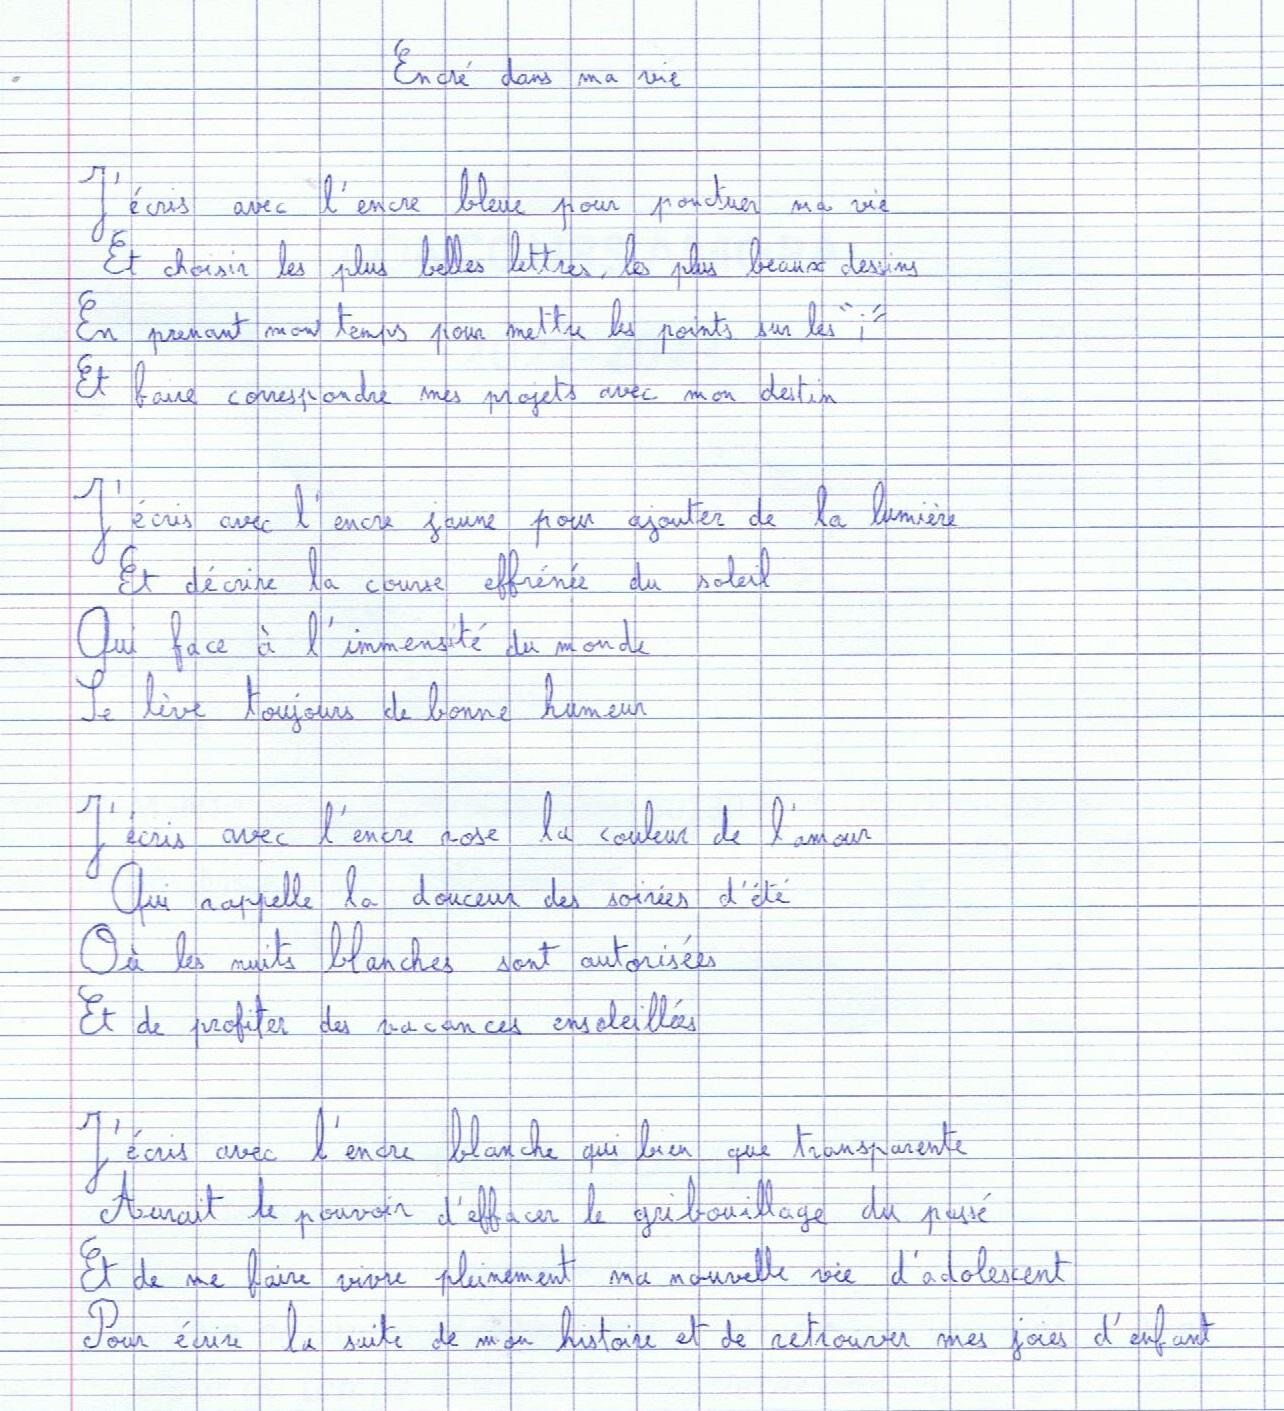 Encré dans ma vie
J'écris avec l'encre bleue pour ponctuer ma vie
Et choisir les plus belles lettres, les plus beaux dessins
En prenant mon temps pour mettre les points sur les "i"
Et faire correspondre mes projets avec mon destin
J'écris avec l'encre jaune pour ajouter de la lumière
Et décrire la course effrénée du soleil
Qui face à l'immensité du monde
Se lève toujours de bonne humeur
J'écris avec l'encre rose la couleur de l'amour
Qui rappelle la douceur des soirées d'été
Où les nuits blanches sont autorisées
Et de profiter des vacances ensoleillées
J'écris avec l'encre blanche qui bien que transparente
Aurait le pouvoir d'effacer le gribouillage du passé
Et de me faire vivre pleinement ma nouvelle vie d'adolescent
Pour écrire la suite de mon histoire et de retrouver mes joies d'enfant